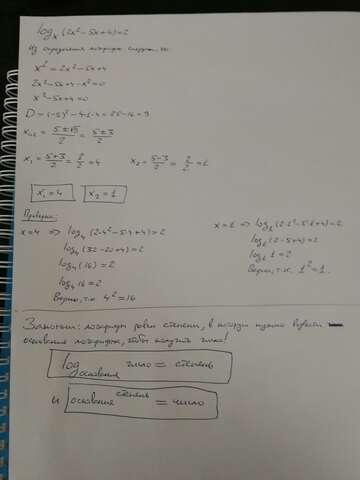 log_x (2x²-5x+4)=2
Из определения логарифма следует, что
x² = 2x²-5x+4
2x²-5x+4-x²=0
x²-5x+4=0
D=(-5)²-4·1·4=25-16=9
x₁,₂ = (5±√9)/2 = (5±3)/2
x₁ = (5+3)/2 = 8/2 = 4 x₂ = (5-3)/2 = 2/2 = 1
x₁=4 x₂=1
Проверка:
x=4 ⇒ log₄(2·4²-5·4+4)=2
log₄(32-20+4)=2
log₄(16)=2
log₄16=2
Верно, т.к. 4²=16
x=1 ⇒ log₁(2·1²-5·1+4)=2
log₁(2-5+4)=2
log₁1=2
Верно, т.к. 1²=1.
Запомни: логарифм равен степени, в которую нужно возвести
основание логарифма, чтобы получить число!
log_основания число = степень
и основание^степень = число